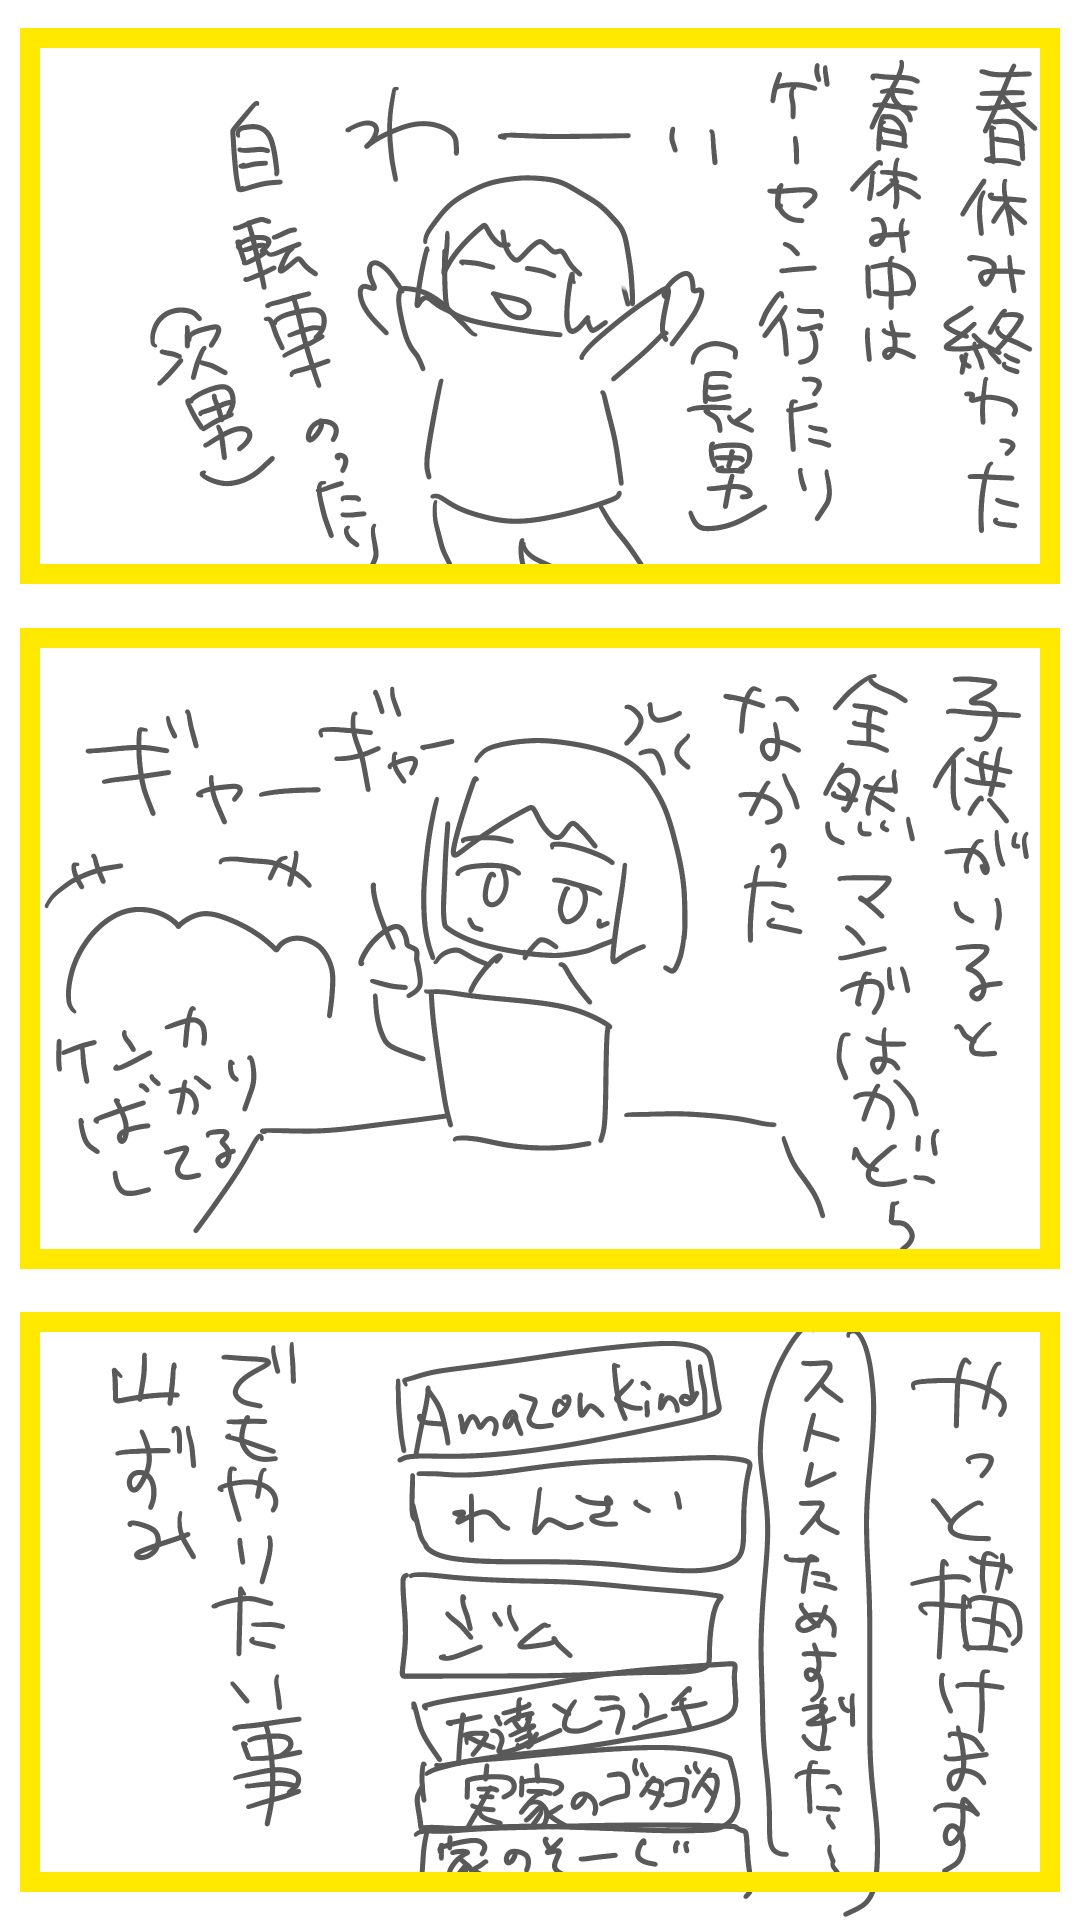 春休み終わった
春休み中は
ゲーセン行ったり
(長男)
わーーい
自転車のったり
(次男)
子供がいると
全然マンガはかどら
なかった
ギャーギャー
ケンカ
ばかり
してる
やっと描けます
ストレスためすぎた~
Amazon Kindl
れんさい
ジム
友達とランチ
実家のゴダゴダ
家のそーじ
でもやりたい事
山ずみ